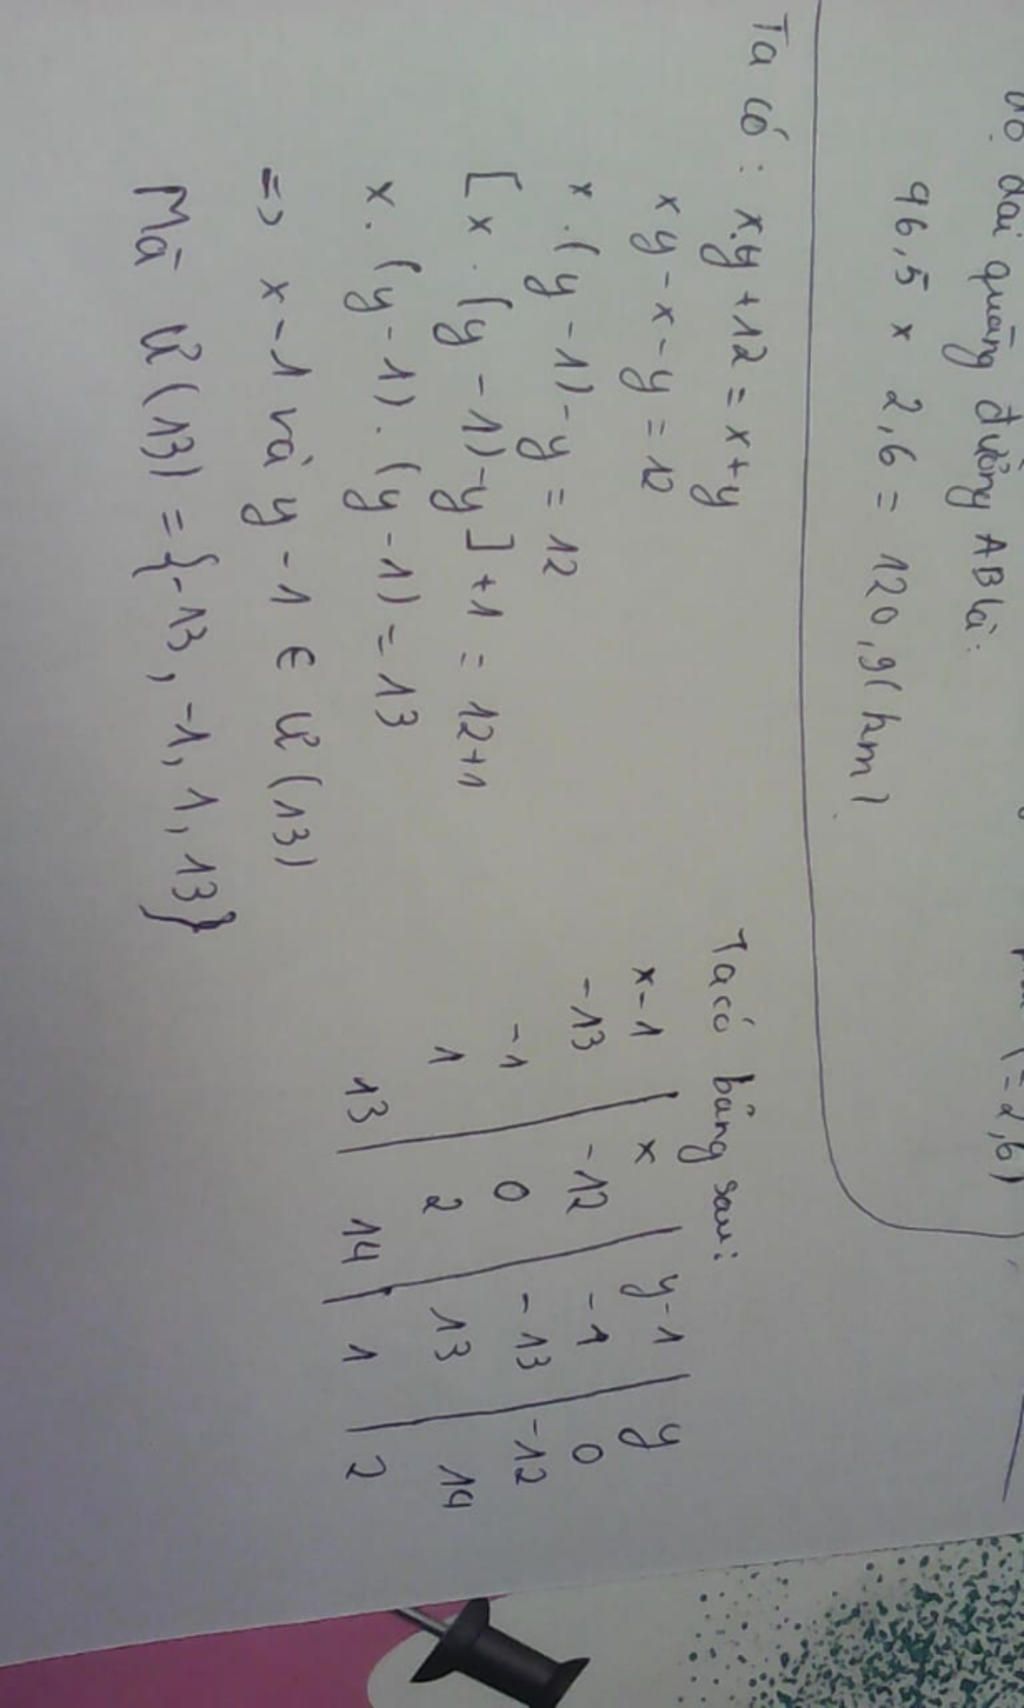 dài quãng đường AB là:
96,5 x 2,6 = 120,9(km)
Ta có: x.y + 12 = x+y
xy - x - y = 12
x.(y - 1) - y = 12
[x.(y - 1)-y] +1 = 12+1
x.(y-1).(y-1) = 13
=> x-1 và y-1 ∈ Ư(13)
Mà Ư(13) = {-13, -1, 1, 13}
Ta có bảng sau:
x-1 x y-1 y
-13 -12 -1 0
-1 0 -13 -12
1 2 13 14
13 14 1 2